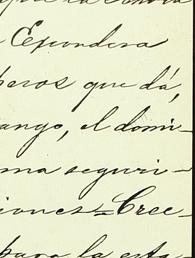 Expondera
peros que dá,
ango, el domi-
ma seguri-
iones=Cree-
para la esta